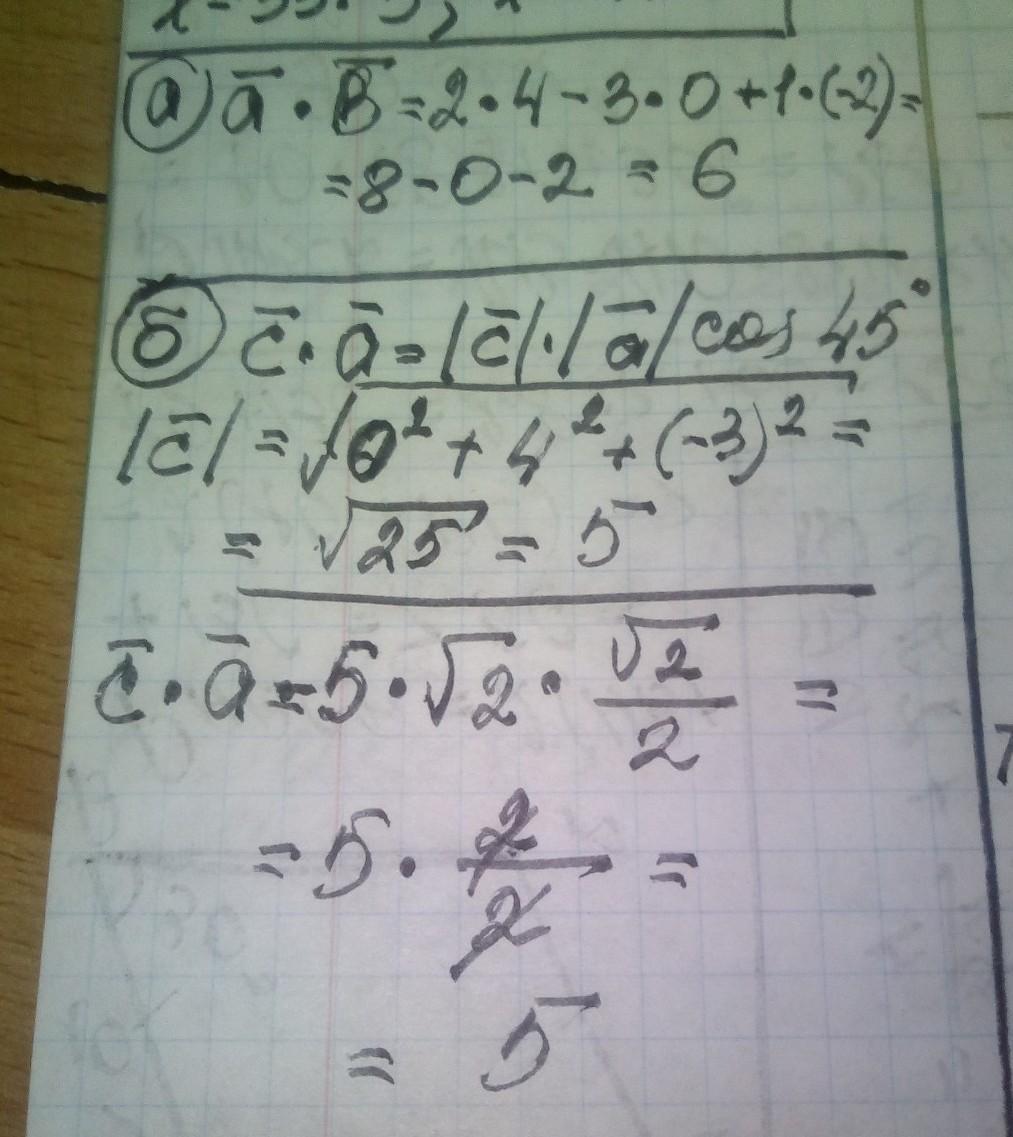 а) a̅ · B̅ = 2 · 4 - 3 · 0 + 1 · (-2) =
= 8 - 0 - 2 = 6
б) c̅ · a̅ = |c̅| · |a̅| cos 45°
|c̅| = √0² + 4² + (-3)² =
= √25 = 5
c̅ · a̅ = 5 · √2 · √2/2 =
= 5 · 2/2 =
= 5